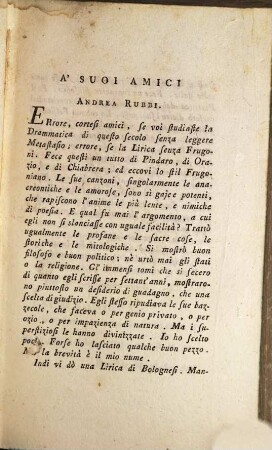 A' SUOI AMICI
ANDREA RUBBI.
ERrore, cortesi amici, se voi studiaste la
Drammatica di questo secolo senza leggere
Metastasio; errore, se la Lirica senza Frugo-
ni. Fece questi un tutto di Pindaro, di Ora-
zio, e di Chiabrera; ed eccovi lo stil Frugo-
niano. Le sue canzoni, singolarmente le ana-
creontiche e le amorose, sono sì gaje e potenti,
che rapiscono l'anime le più lente, e nimiche
di poesia. E qual fu mai l'argomento, a cui
egli non si slanciasse con ugual facilità? Trattò
ugualmente le profane e le sacre cose, le
storiche e le mitologiche. Si mostrò buon
filosofo e buon politico; nè urtò mai gli stati
o la religione. Gl' immensi tomi che si fecero
di quanto egli scrisse per settant'anni, mostraro-
no piuttosto un desiderio di guadagno, che una
scelta di giudizio. Egli stesso ripudiava le sue baz-
zecole, che faceva o per genio privato, o per
ozio, o per impazienza di natura. Ma i su-
perstiziosi le hanno divinizzate. Io ho scelto
poco. Forse ho lasciato qualche buon pezzo.
Ma la brevità è il mio nume.
Indi vi dò una Lirica di Bolognesi. Man-